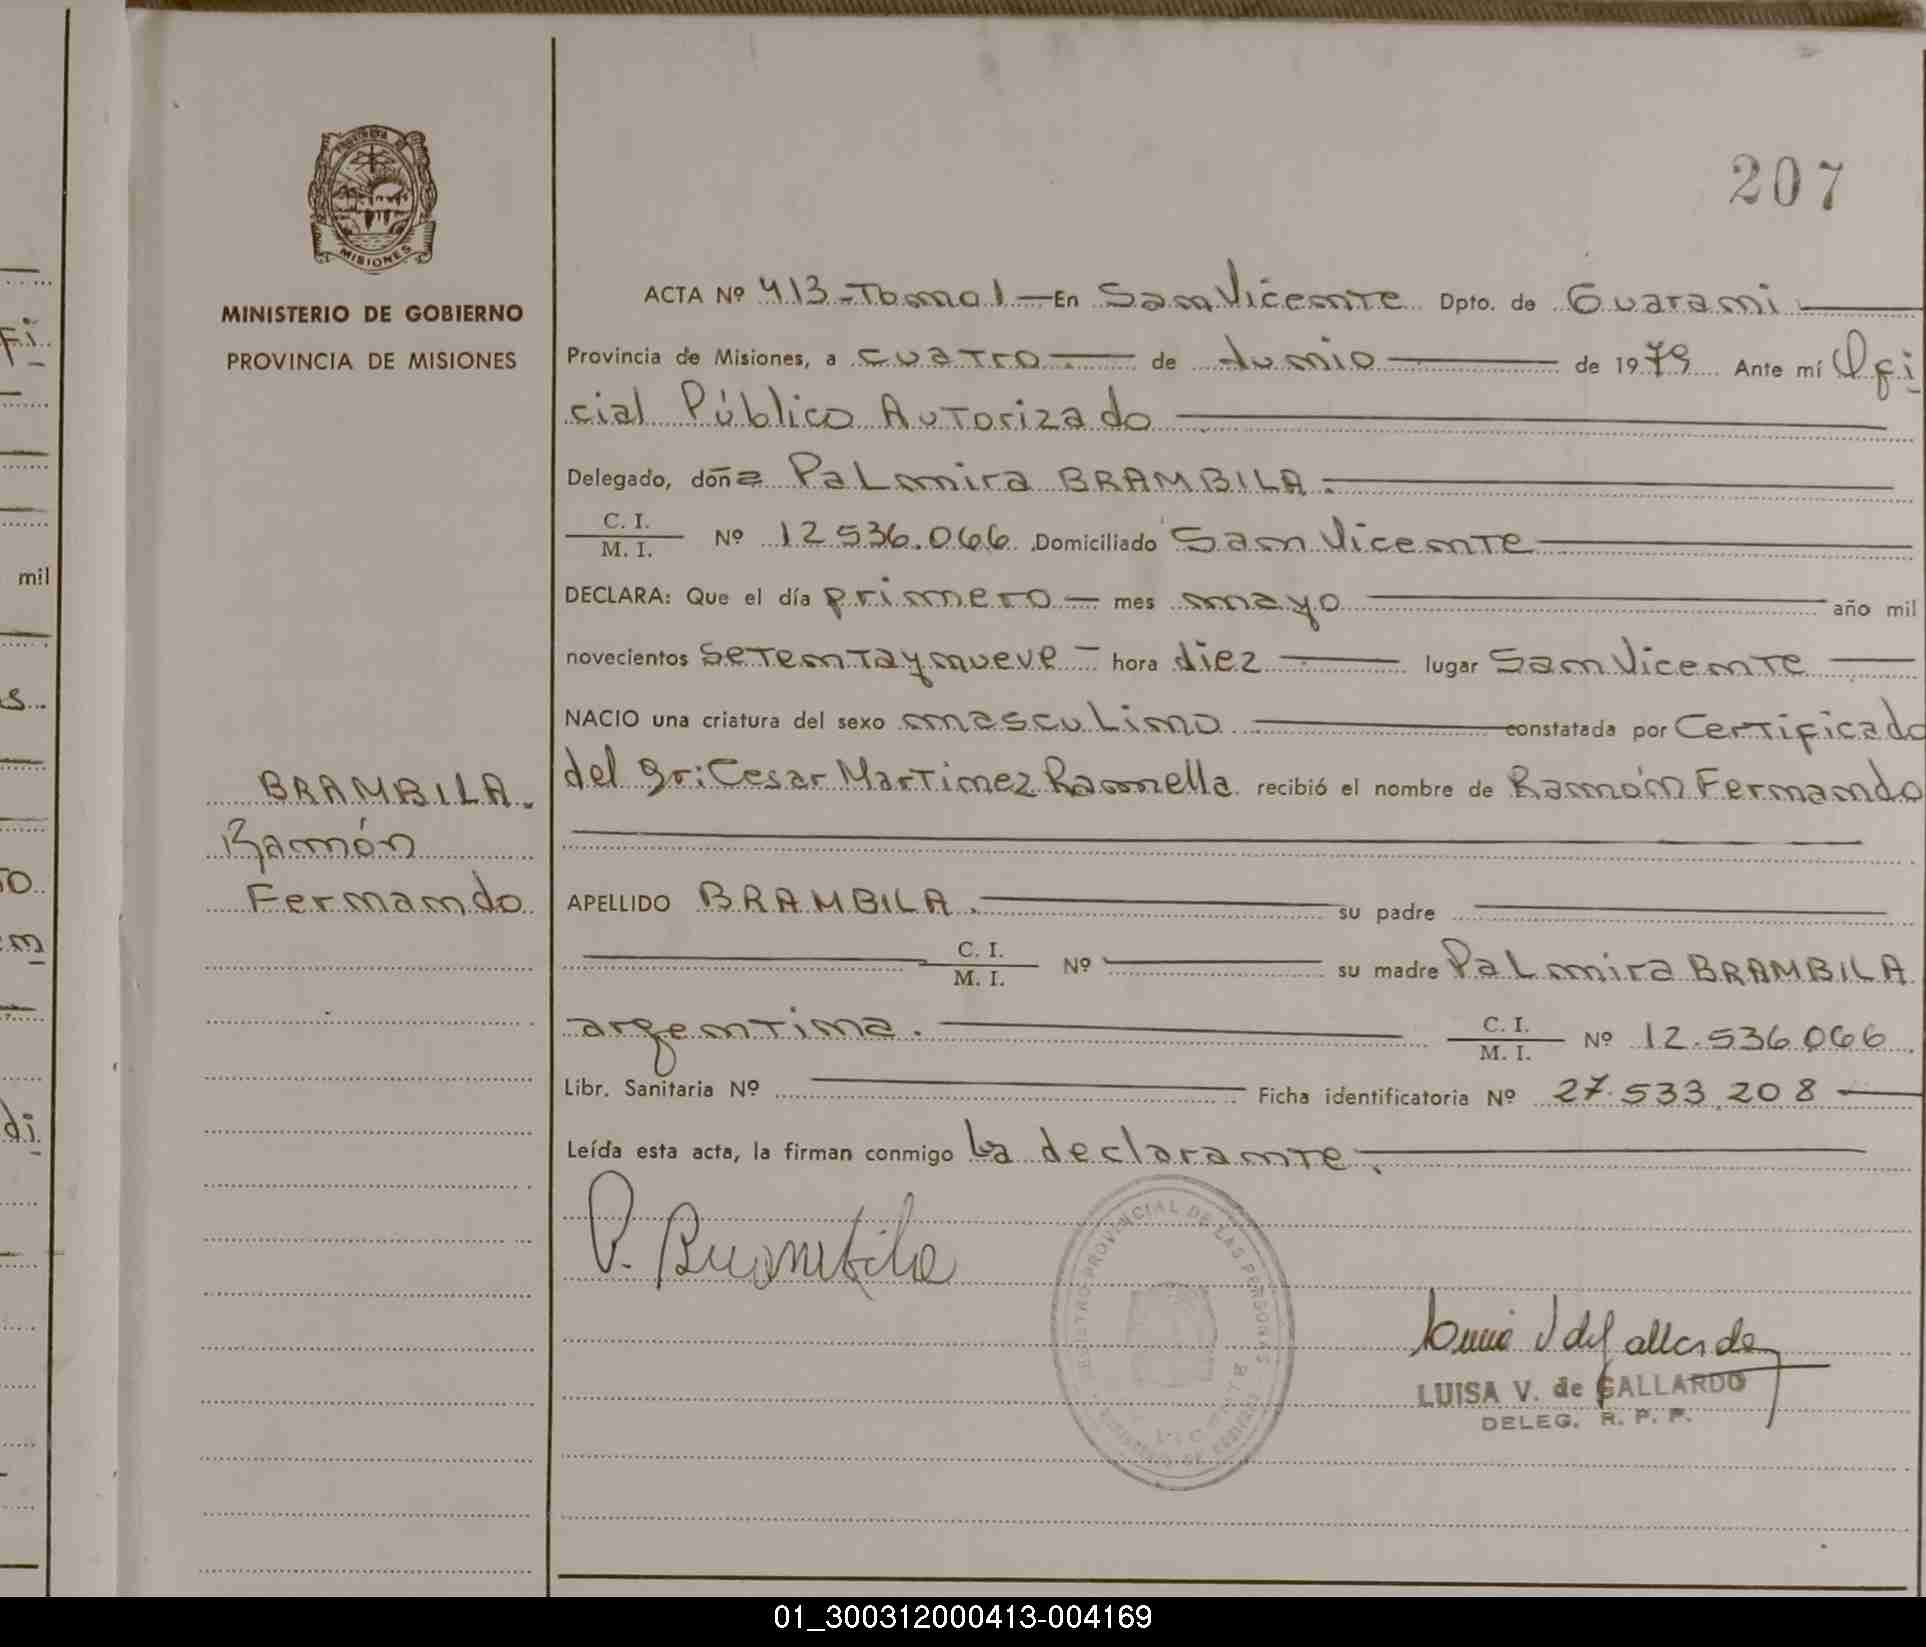 207
PROVINCIA DE
MISIONES
MINISTERIO DE GOBIERNO
PROVINCIA DE MISIONES
ACTA Nº 413-Tomo I - En San Vicente Dpto. de Guaraní
Provincia de Misiones, a cuatro de Junio de 1979 Ante mí Ofi
cial Público Autorizado
Delegado, doña Palmira BRAMBILA.
C. I.
M. I. Nº 12.536.066 Domiciliado San Vicente
DECLARA: Que el día primero mes mayo año mil
novecientos setenta y nueve hora diez lugar San Vicente
NACIO una criatura del sexo masculino constatada por Certificado
del Dr: Cesar Martinez Ramella recibió el nombre de Ramón Fernando
BRAMBILA.
Ramón
Fernando
APELLIDO BRAMBILA. su padre
C. I.
M. I. Nº su madre Palmira BRAMBILA
argentina. C. I.
M. I. Nº 12.536.066
Libr. Sanitaria Nº Ficha identificatoria Nº 27.533.208
Leída esta acta, la firman conmigo la declarante.
P. Brambila
REGISTRO PROVINCIAL DE LAS PERSONAS
LUISA V. de GALLARDO
DELEG. R. P. P.
fi
mil
s
TO
em
di
01_300312000413-004169